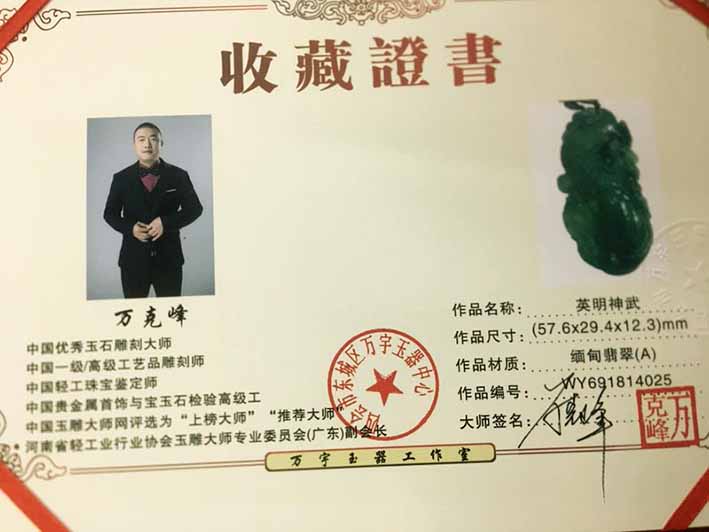 收藏證書
万克峰
中国优秀玉石雕刻大师
中国一级/高级工艺品雕刻师
中国轻工珠宝鉴定师
中国贵金属首饰与宝玉石检验高级工
中国玉雕大师网评选为“上榜大师”“推荐大师”
河南省轻工业行业协会玉雕大师专业委员会(广东)副会长
作品名称: 英明神武
作品尺寸: (57.6x29.4x12.3)mm
作品材质: 缅甸翡翠(A)
作品编号: WY691814025
大师签名: 万克峰
万克峰
四会市东城区万宇玉器中心
万宇玉器工作室